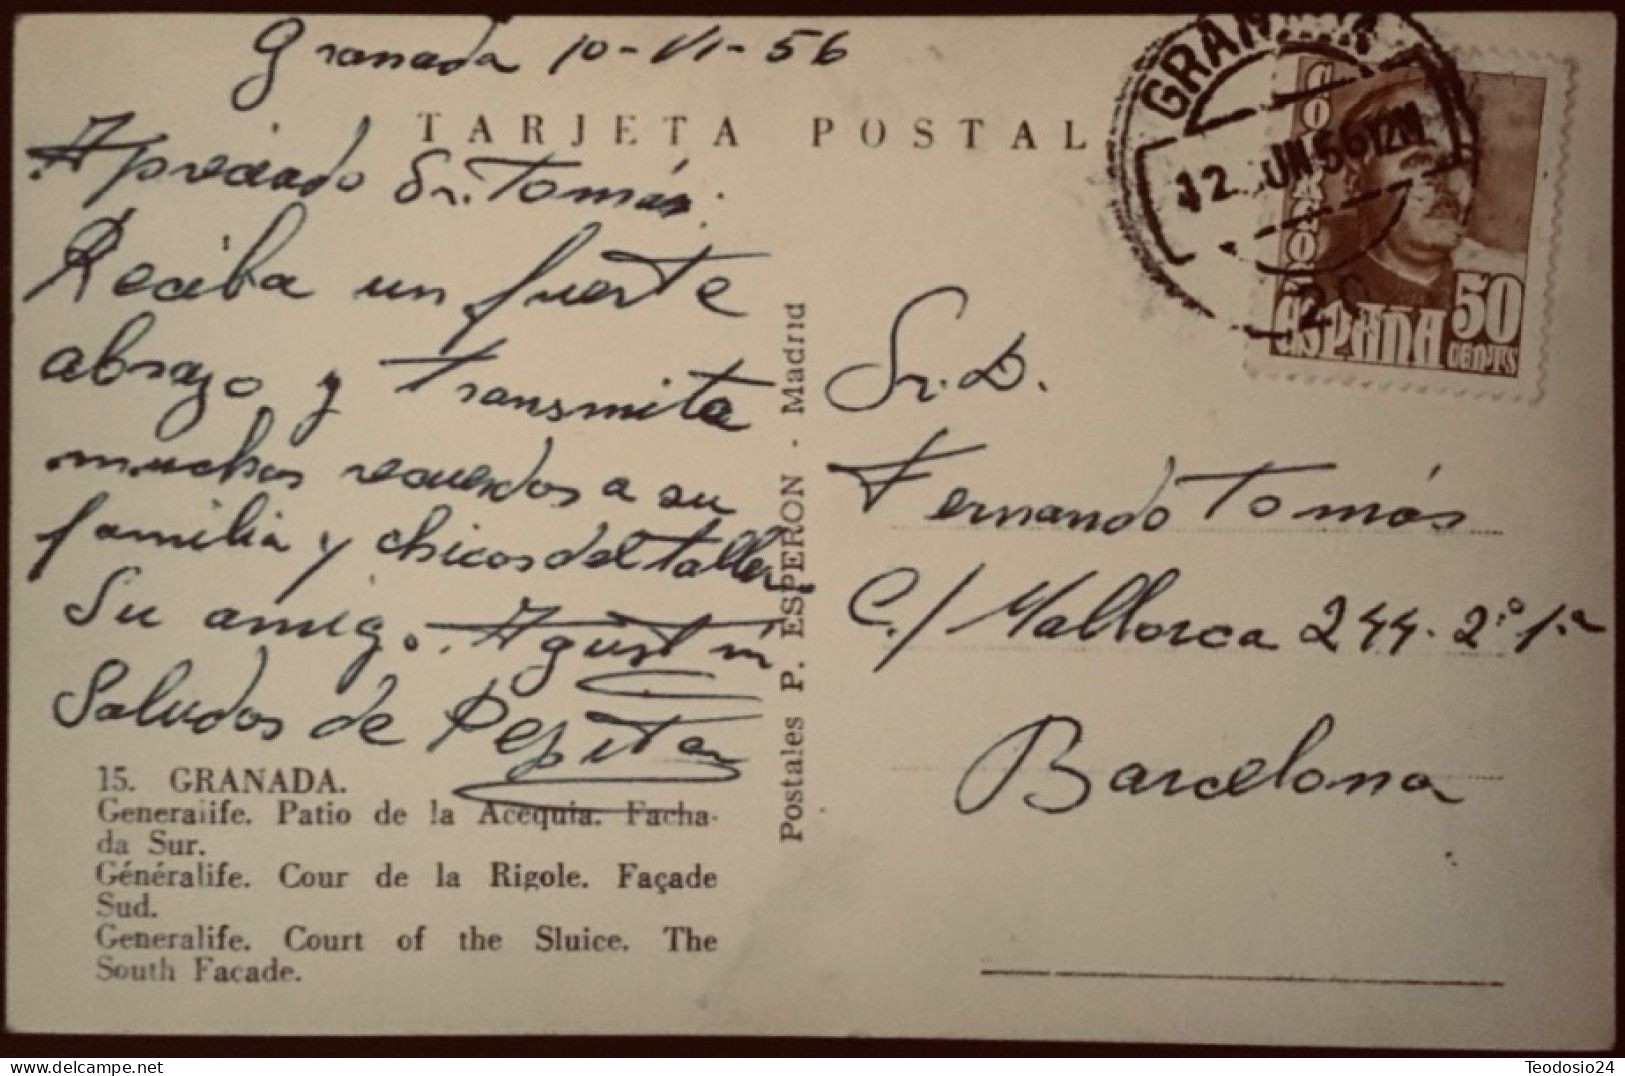 Granada 10-VI-56
TARJETA POSTAL
Apreciado Sr. Tomás:
Reciba un fuerte
abrazo y transmita
muchos recuerdos a su
familia y chicos del taller
Su amigo. Agustín
Saludos de Pepita
15. GRANADA.
Generalife. Patio de la Acequia. Facha-
da Sur.
Généralife. Cour de la Rigole. Façade
Sud.
Generalife. Court of the Sluice. The
South Facade.
Postales P. ESPERON - Madrid
GRANADA
12 JUN 56 12M
CORREOS
ESPAÑA
50
CENTS
Sr. D.
Fernando Tomás
C./ Mallorca 244-2º 1ª
Barcelona
Teodosio24